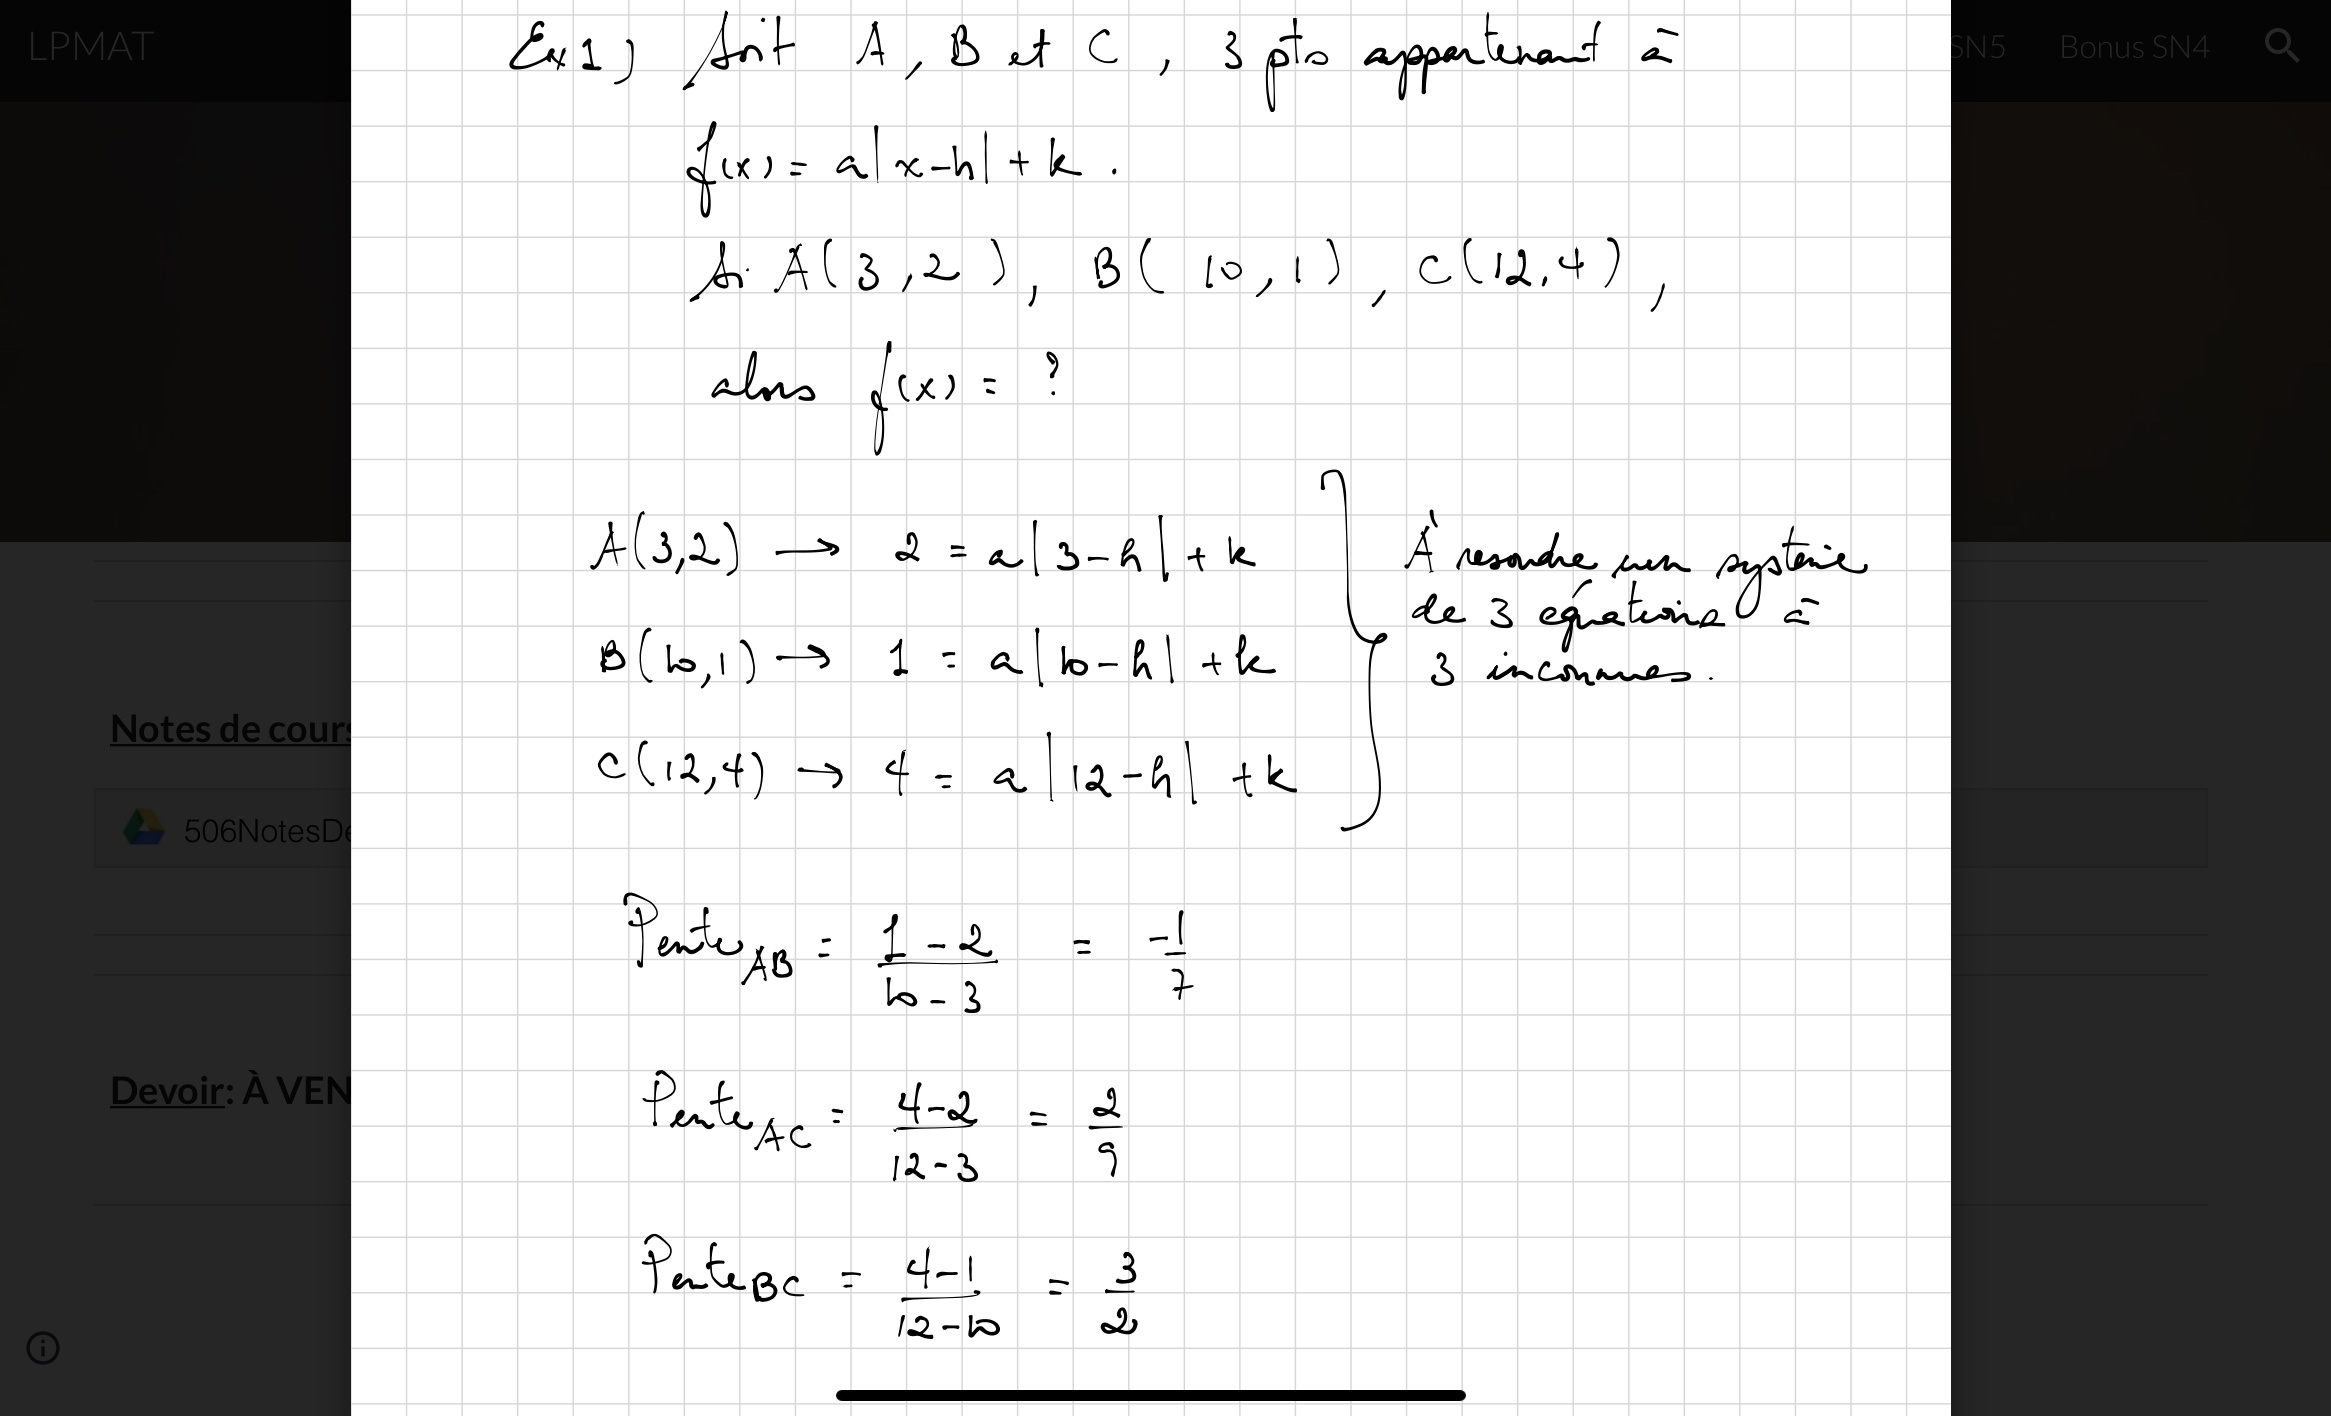 LPMAT
SN5 Bonus SN4
Ex1) Soit A, B et C, 3 pts appartenant à
f(x) = a|x-h| + k.
Si A(3,2), B(10,1), C(12,4),
alors f(x) = ?
A(3,2) → 2 = a|3-h| + k
B(10,1) → 1 = a|10-h| + k
C(12,4) → 4 = a|12-h| + k
À resoudre un système
de 3 équations à
3 inconnues.
Pente AB = (1-2)/(10-3) = -1/7
Pente AC = (4-2)/(12-3) = 2/9
Pente BC = (4-1)/(12-10) = 3/2
Notes de cours
506NotesDe
Devoir: À VEN